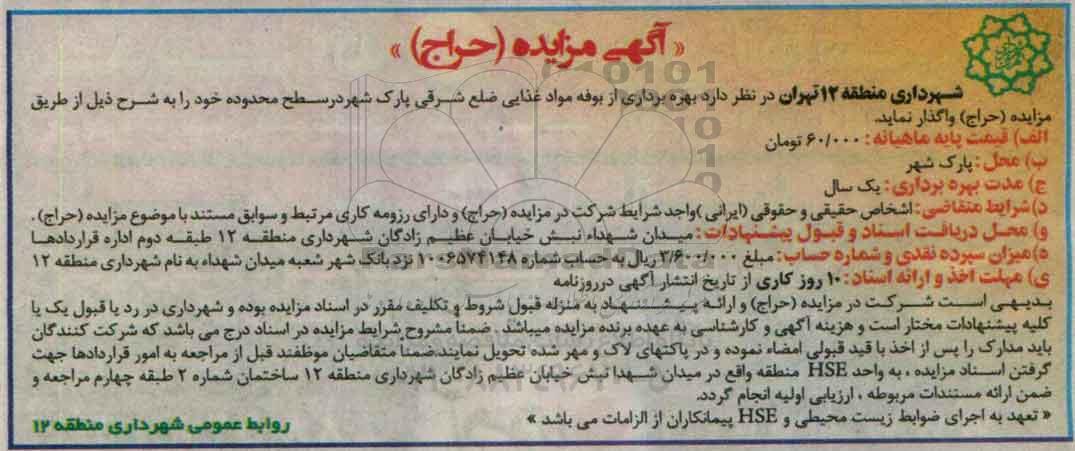 « آگهی مزایده (حراج) »
شهرداری منطقه ۱۲ تهران در نظر دارد بهره برداری از بوفه مواد غذایی ضلع شرقی پارک شهر درسطح محدوده خود را به شرح ذیل از طریق
مزایده (حراج) واگذار نماید.
الف) قیمت پایه ماهیانه: ۶۰/۰۰۰ تومان
ب) محل: پارک شهر
ج) مدت بهره برداری: یک سال
د) شرایط متقاضی: اشخاص حقیقی و حقوقی (ایرانی) واجد شرایط شرکت در مزایده (حراج) و دارای رزومه کاری مرتبط و سوابق مستند با موضوع مزایده (حراج).
و) محل دریافت اسناد و قبول پیشنهادات: میدان شهداء نبش خیابان عظیم زادگان شهرداری منطقه ۱۲ طبقه دوم اداره قراردادها
ه) میزان سپرده نقدی و شماره حساب: مبلغ ۳/۶۰۰/۰۰۰ ریال به حساب شماره ۱۰۰۶۵۷۴۱۴۸ نزد بانک شهر شعبه میدان شهداء به نام شهرداری منطقه ۱۲
ی) مهلت اخذ و ارائه اسناد: ۱۰ روز کاری از تاریخ انتشار آگهی درروزنامه
بدیهی است شرکت در مزایده (حراج) و ارائه پیشنهاد به منزله قبول شروط و تکلیف مقرر در اسناد مزایده بوده و شهرداری در رد یا قبول یک یا
کلیه پیشنهادات مختار است و هزینه آگهی و کارشناسی به عهده برنده مزایده میباشد. ضمناً مشروح شرایط مزایده در اسناد درج می باشد که شرکت کنندگان
باید مدارک را پس از اخذ با قید قبولی امضاء نموده و در پاکتهای لاک و مهر شده تحویل نمایند.ضمناً متقاضیان موظفند قبل از مراجعه به امور قراردادها جهت
گرفتن اسناد مزایده، به واحد HSE منطقه واقع در میدان شهدا نبش خیابان عظیم زادگان شهرداری منطقه ۱۲ ساختمان شماره ۲ طبقه چهارم مراجعه و
ضمن ارائه مستندات مربوطه، ارزیابی اولیه انجام گردد.
« تعهد به اجرای ضوابط زیست محیطی و HSE پیمانکاران از الزامات می باشد »
روابط عمومی شهرداری منطقه ۱۲